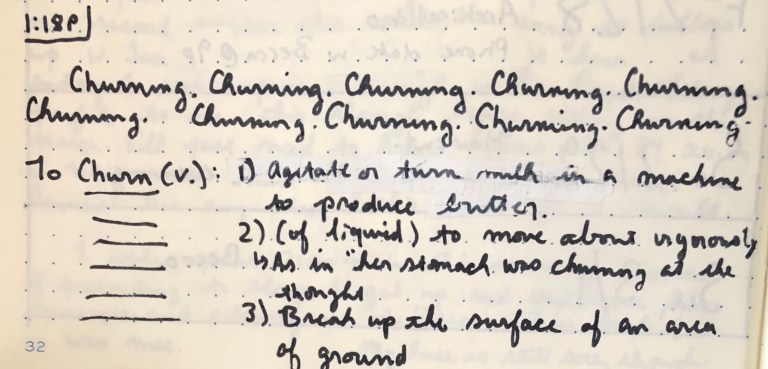 1:18P
Churning. Churning. Churning. Churning. Churning.
Churning. Churning Churning. Churning. Churning
To Churn (v.): 1) Agitate or turn milk in a machine
to produce butter.
2) (of liquid) to move about vigorously
↳As in "her stomach was churning at the
thought
3) Break up the surface of an area
of ground
32